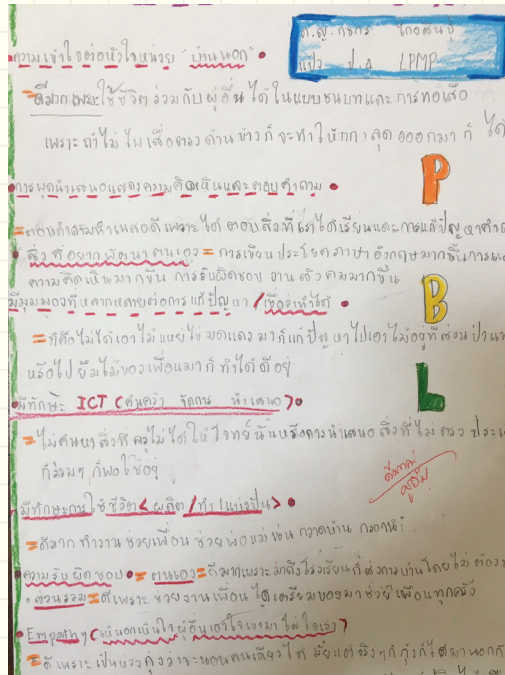 ด.ญ. กชกร
แป้ง ป.๑ LPMP
ความเข้าใจต่อหัวใจหมาย "บ้านนอก"
= ดีมากเพราะใช้ชีวิตร่วมกับผู้อื่นได้ในแบบชนบทและการทอเสื่อ
เพราะถ้าไม่ ไพเสื่อตรงด้านข้างก็จะทำให้กก หลุดออกมาก็ ได้
P
การพูดนำเสนอแสดงความคิดเห็นและตอบคำถาม
= ตอบคำถามนำเสนอดีเพราะได้ ตอบสิ่งที่เราได้เรียนและการแก้ปัญหา
สิ่งที่อยากพัฒนาตนเอง = การเขียนประโยคภาษาอังกฤษมากขึ้น
ความคิดเห็นมากขึ้น การรับผิดชอบ งานสังคมมากขึ้น
B
มีมุมมองที่หลากหลายต่อการแก้ปัญหา / เชื่อว่าทำได้
= ก็คือไม่ได้เอาไม้แหย่ไข่มดแดงมาก็แก้ปัญหาไปเอาไม้อยู่ที่สวน
หรือไปยืมไม้ของเพื่อนมาก็ทำได้ดีอยู่
L
มีทักษะ ICT (ค้นคว้า จัดการ นำเสนอ)
= ไม่ค้นหาสิ่งที่ครูไม่ได้ให้โจทย์นั้นหรือการนำเสนอ สิ่งที่ไม่ตรง
ก็รวมๆ ก็พอใช้อยู่
ดีมากค่ะ
มีทักษะการใช้ชีวิต < ผลิต / ทำ / แบ่งปัน >
= ดีมาก ทำงาน ช่วยเพื่อน ช่วยพ่อแม่ เช่น กวาดบ้าน
ความรับผิดชอบ = ตนเอง = ดีมากเพราะมาถึงโรงเรียนก็ส่งการบ้านโดยไม่ต้อง
ส่วนรวม = ดีเพราะ ช่วยงานเพื่อน ได้เตรียมของมาช่วยเพื่อนทุกครั้ง
Empathy (เห็นอกเห็นใจผู้อื่นเอาใจเขามาใส่ใจเรา)
= ดี เพราะ